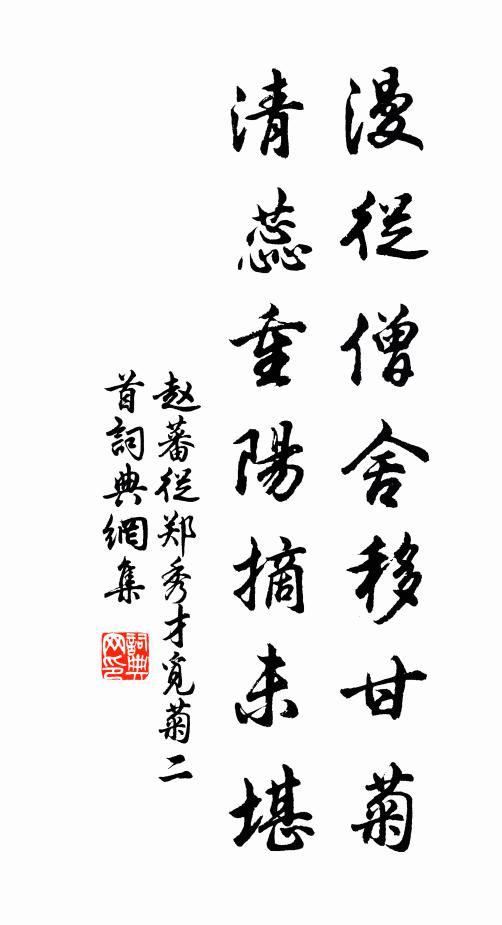 漫從僧舍移甘菊
清蕊重陽摘未堪
赵蕃從郑秀才覓菊二
首詞典網集
詞典
网印